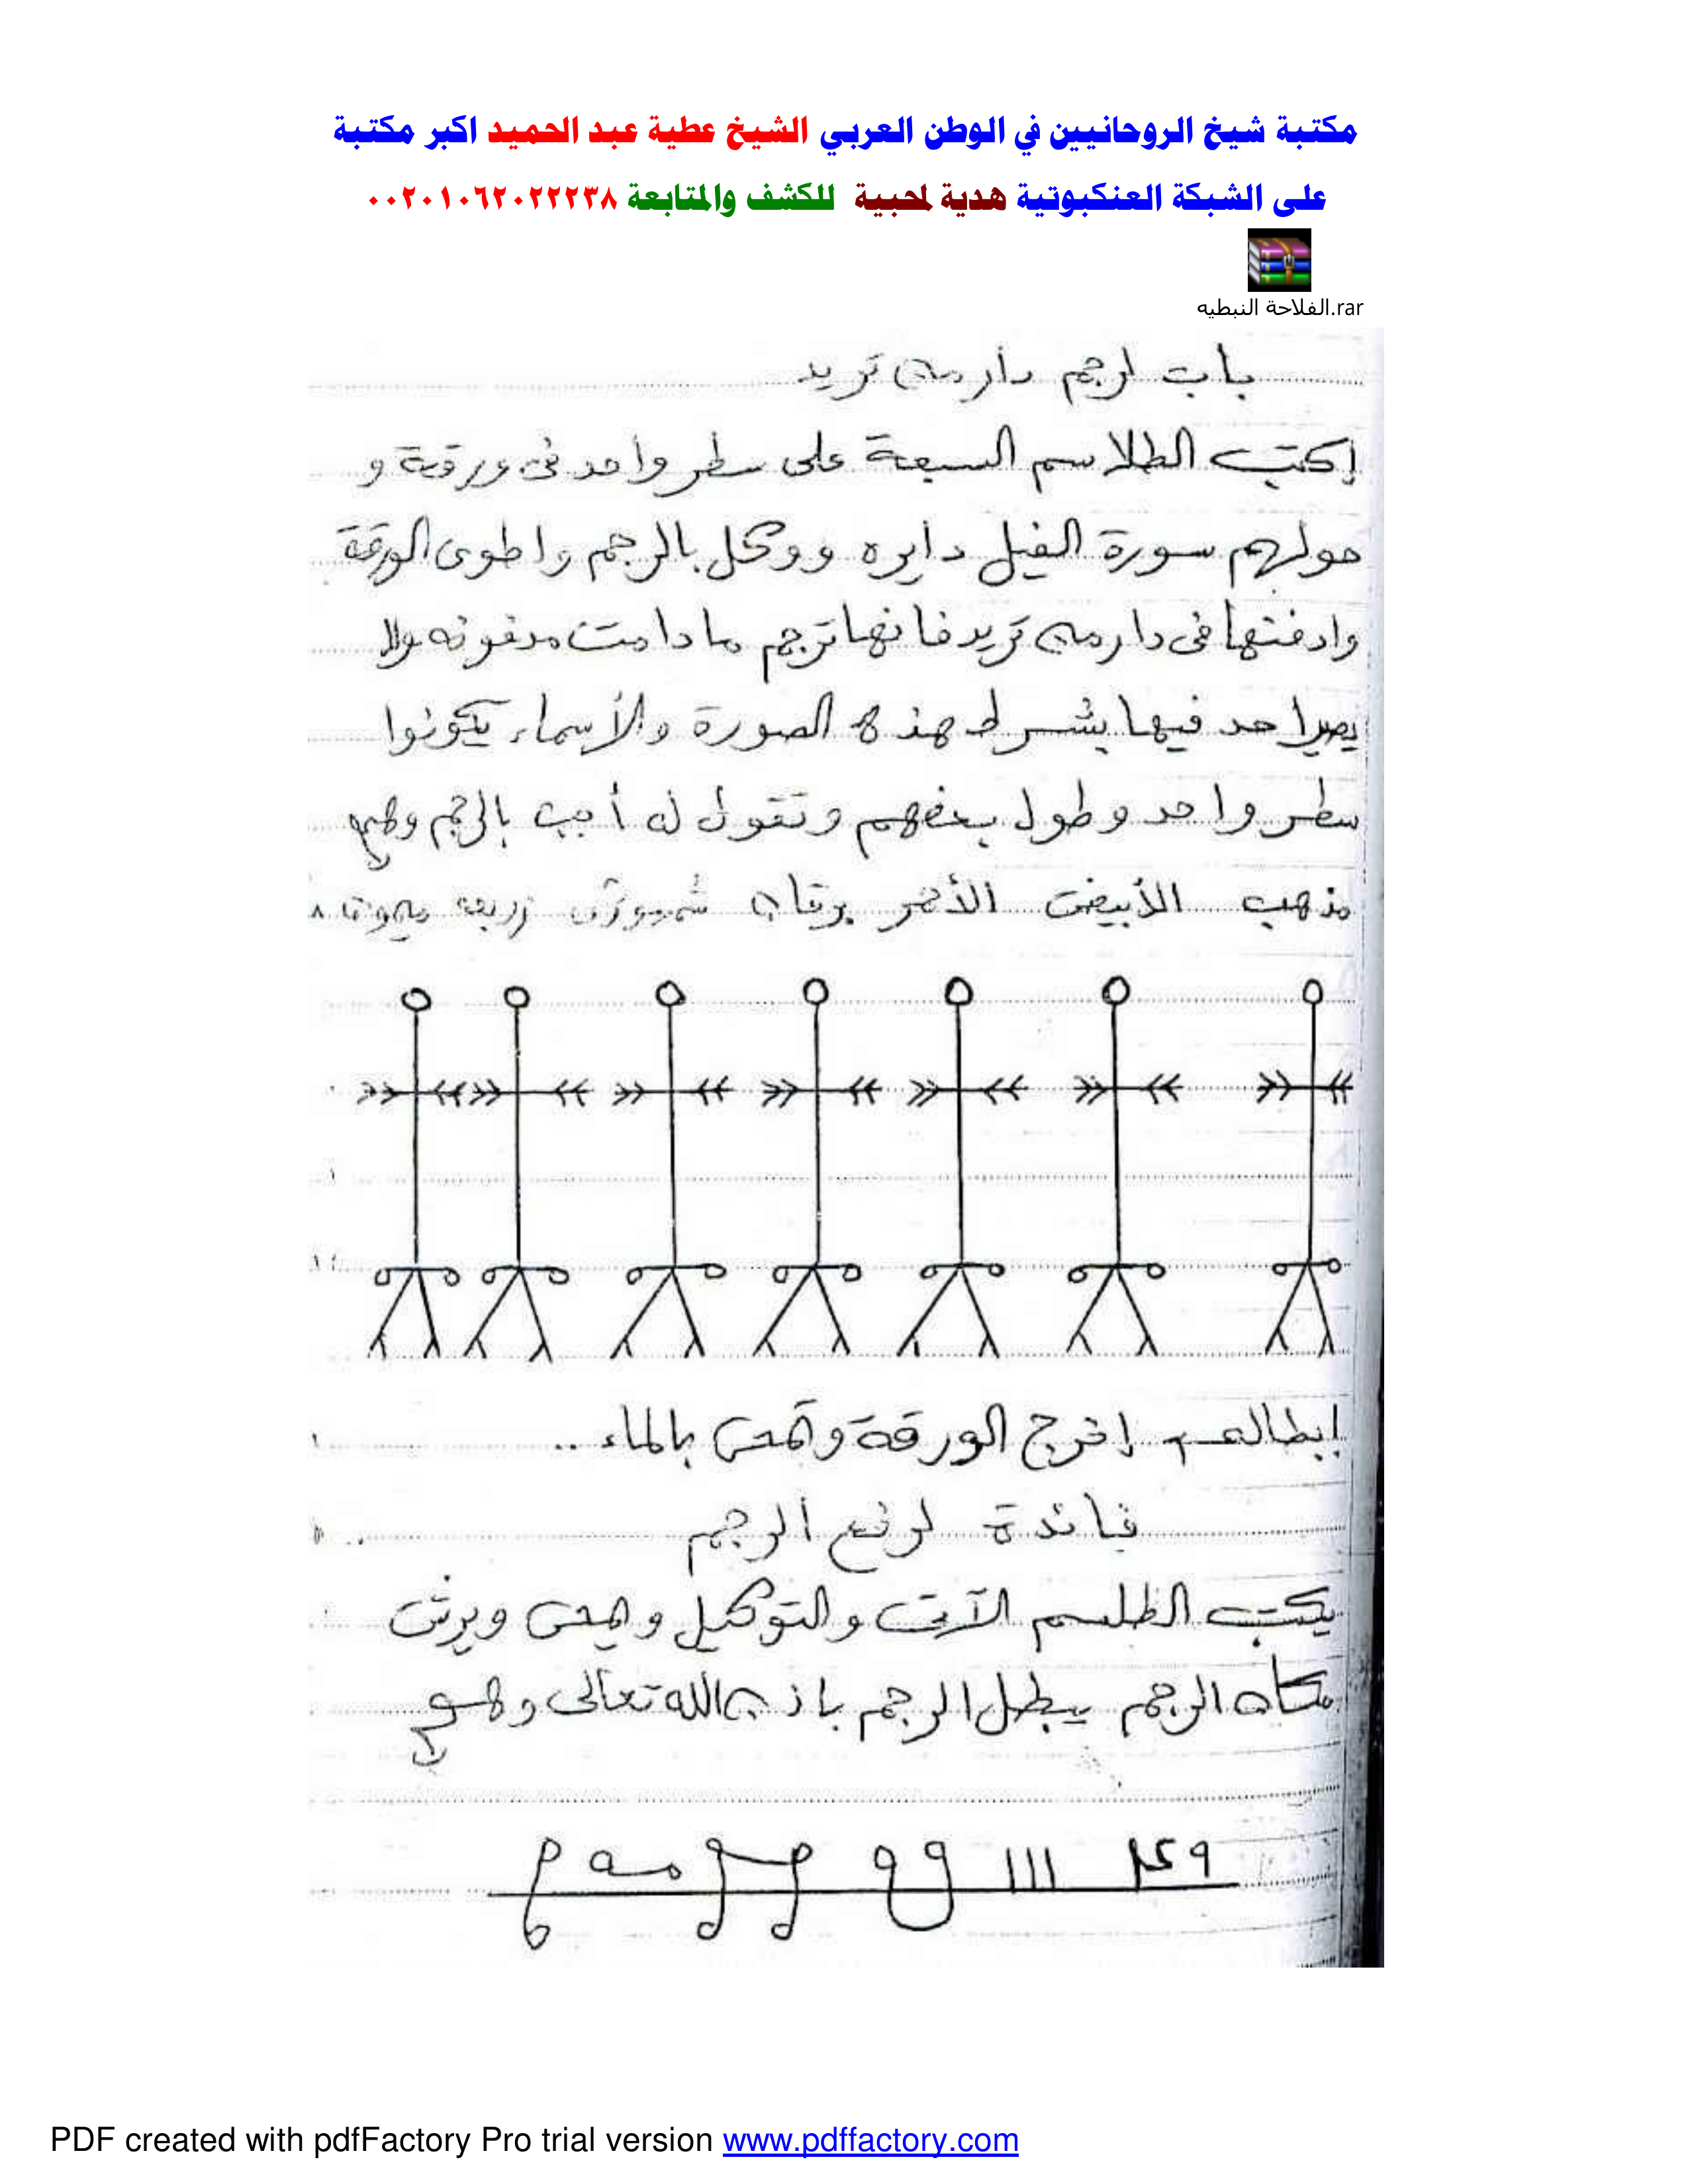 مكتبة شيخ الروحانيين في الوطن العربي الشيخ عطية عبد الحميد اكبر مكتبة
على الشبكة العنكبوتية هدية لمحبية للكشف والمتابعة ٠٠٢٠١٠٦٢٠٢٢٢٣٨
الفلاحة النبطيه.rar
باب لرجم دار من تريد
إكتب الطلاسم السبعة على سطر واحد فى ورقة و
حولهم سورة الفيل دايره ووكل بالرجم واطوى الورقة
وادفنها فى دار من تريد فانها ترجم ما دامت مدفونه ولا
احد فيها بشرط هذه الصورة والأسماء يكونوا
سطر واحد وطول بعضهم وتقول أجب بالرجم وهم
مذهب الأبيض الأحمر برقان زوبعه ميمون
إبطاله اخرج الورقة وتمحى بالماء ..
فائدة لرفع الرجم
يكتب الطلسم الآتى والتوكيل ويمحى ويرش
مكان الرجم يبطل الرجم باذن الله تعالى وهو
PDF created with pdfFactory Pro trial version www.pdffactory.com